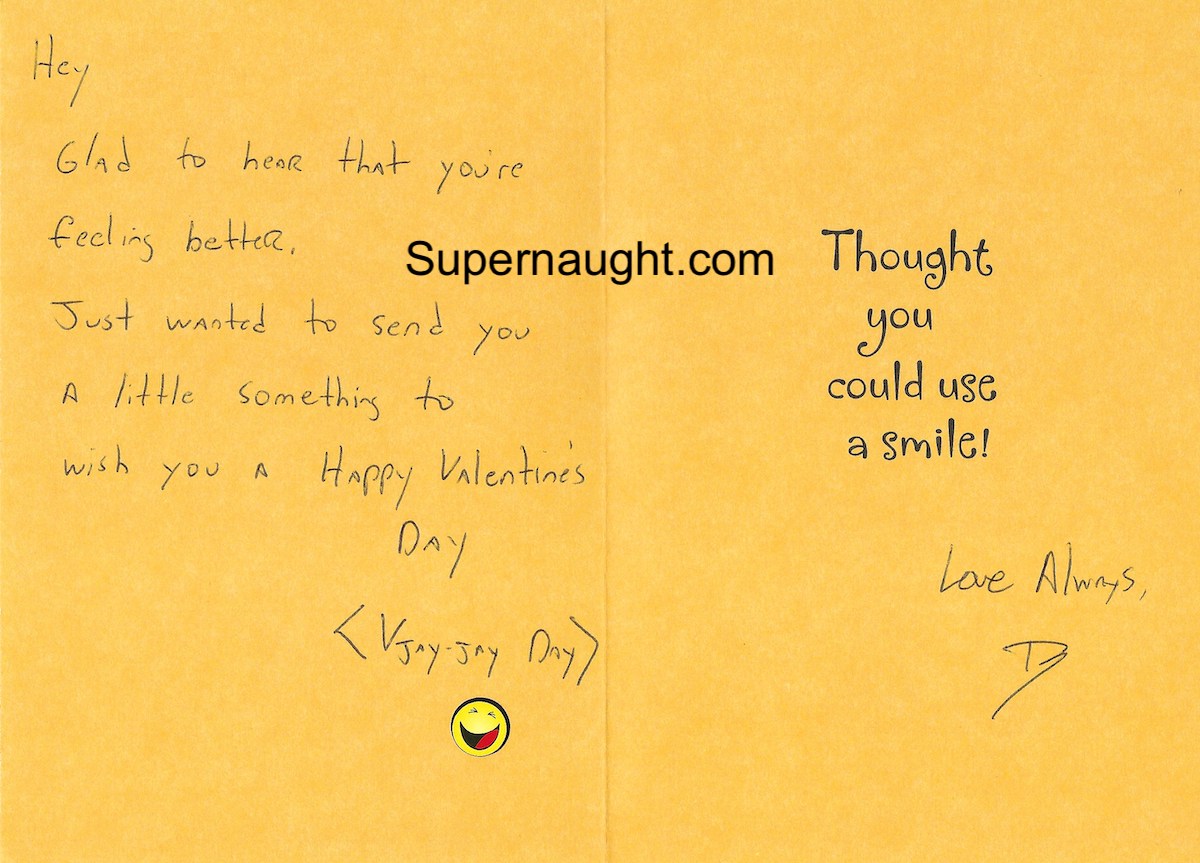 Hey
Glad to hear that you're
feeling better.
Just wanted to send you
A little something to
wish you A Happy Valentine's
Day
<Vjay-jay Day>
Supernaught.com
Thought
you
could use
a smile!
Love Always,
D